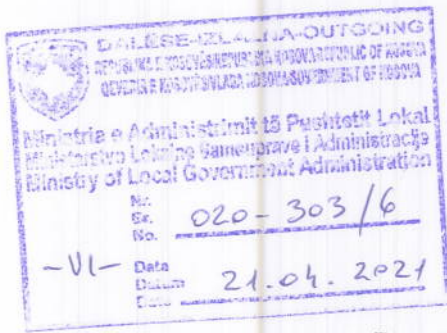 DALËSE-IZLAZNA-OUTGOING
REPUBLIKA E KOSOVËS/REPUBLIKA KOSOVA/REPUBLIC OF KOSOVA
QEVERIA E KOSOVËS/VLADA KOSOVA/GOVERNMENT OF KOSOVA
Ministria e Administrimit të Pushtetit Lokal
Ministarstvo Lokalne Samouprave i Administracije
Ministry of Local Government Administration
Nr.
Br.
No. 020-303/6
-VI- Data
Datum 21.04.2021
Date